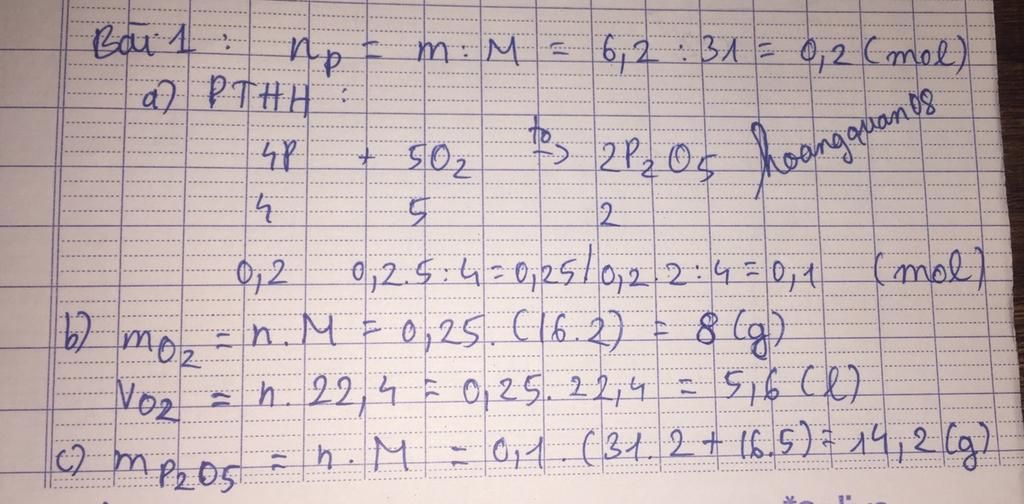 Bài 1 : nP = m : M = 6,2 : 31 = 0,2 (mol)
a) PTHH :
4P + 5O2 to-> 2P2O5 hoangquan08
4 5 2
0,2 0,2.5:4=0,25/0,2.2:4=0,1 (mol)
b) mO2 = n.M = 0,25.(16.2) = 8(g)
VO2 = n.22,4 = 0,25.22,4 = 5,6(l)
c) mP2O5 = n.M = 0,1.(31.2+16.5)=14,2(g)